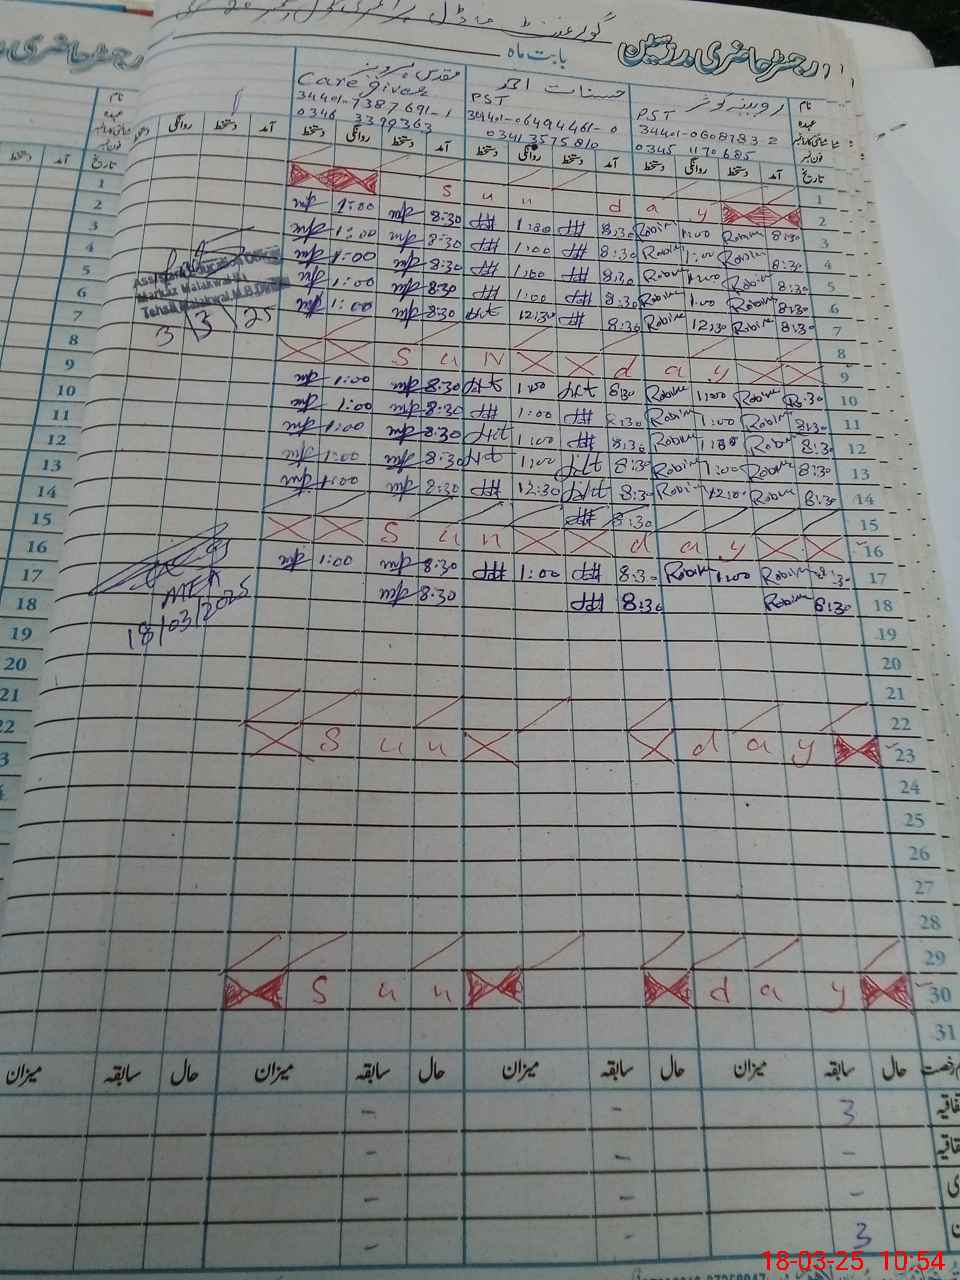 رجسٹر حاضری مدرسین
گورنمنٹ ماڈل پرائمری سکول
بابت ماہ
نام
عہدہ
روبینہ کوثر
PST
34401-0608783 2
0345 1170685
حسنات احمد
PST
34401-06494461-0
0341 3575810
Care giver
34401-7387691-1
0346 3399363
تاریخ آمد دستخط روانگی دستخط آمد دستخط روانگی دستخط آمد دستخط روانگی دستخط آمد دستخط روانگی
1
2 Sunday
3 8:30 Robina 1:00 Robina 8:30 1:00 8:30 1:00
4 8:30 Robina 1:00 Robina 8:30 1:00 8:30 1:00
5 8:30 Robina 1:00 Robina 8:30 1:00 8:30 1:00
6 8:30 Robina 1:00 Robina 8:30 1:00 8:30 1:00
7 8:30 Robina 12:30 Robina 8:30 12:30 8:30 1:00
8
9 Sunday
10 8:30 Robina 1:00 Robina 8:30 1:00 8:30 1:00
11 8:30 Robina 1:00 Robina 8:30 1:00 8:30 1:00
12 8:30 Robina 1:00 Robina 8:30 1:00 8:30 1:00
13 8:30 Robina 1:00 Robina 8:30 1:00 8:30 1:00
14 8:30 Robina 12:00 Robina 8:30 12:30 8:30 1:00
15 8:30
16 Sunday
17 8:30 Robina 1:00 Robina 8:30 1:00 8:30 1:00
18 8:30 Robina 8:30 8:30
19
20
21
22
23 Sunday
24
25
26
27
28
29
30 Sunday
31
Assistant Education Officer
Markaz Malakwal
Tehsil Malakwal, M.B.Din
3/3/25
MEA
18/03/2025
حال سابقہ میزان حال سابقہ میزان حال سابقہ میزان
3 - -
- - -
- - -
3 - -
18-03-25 10:54